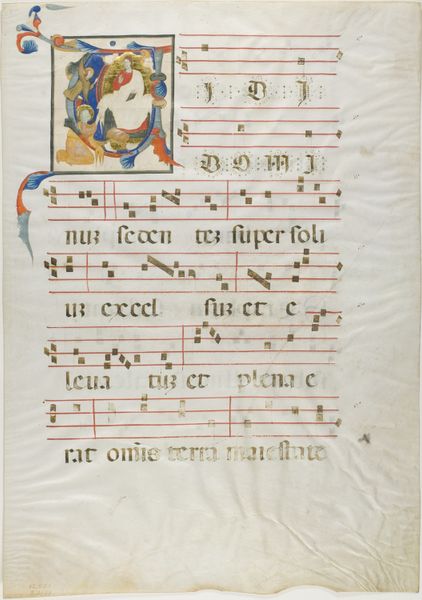 V I D I
D O M I
nuz seden tez super soli
uz excel suz et e
leua tuz et plena e
rat omīs terra maiestate